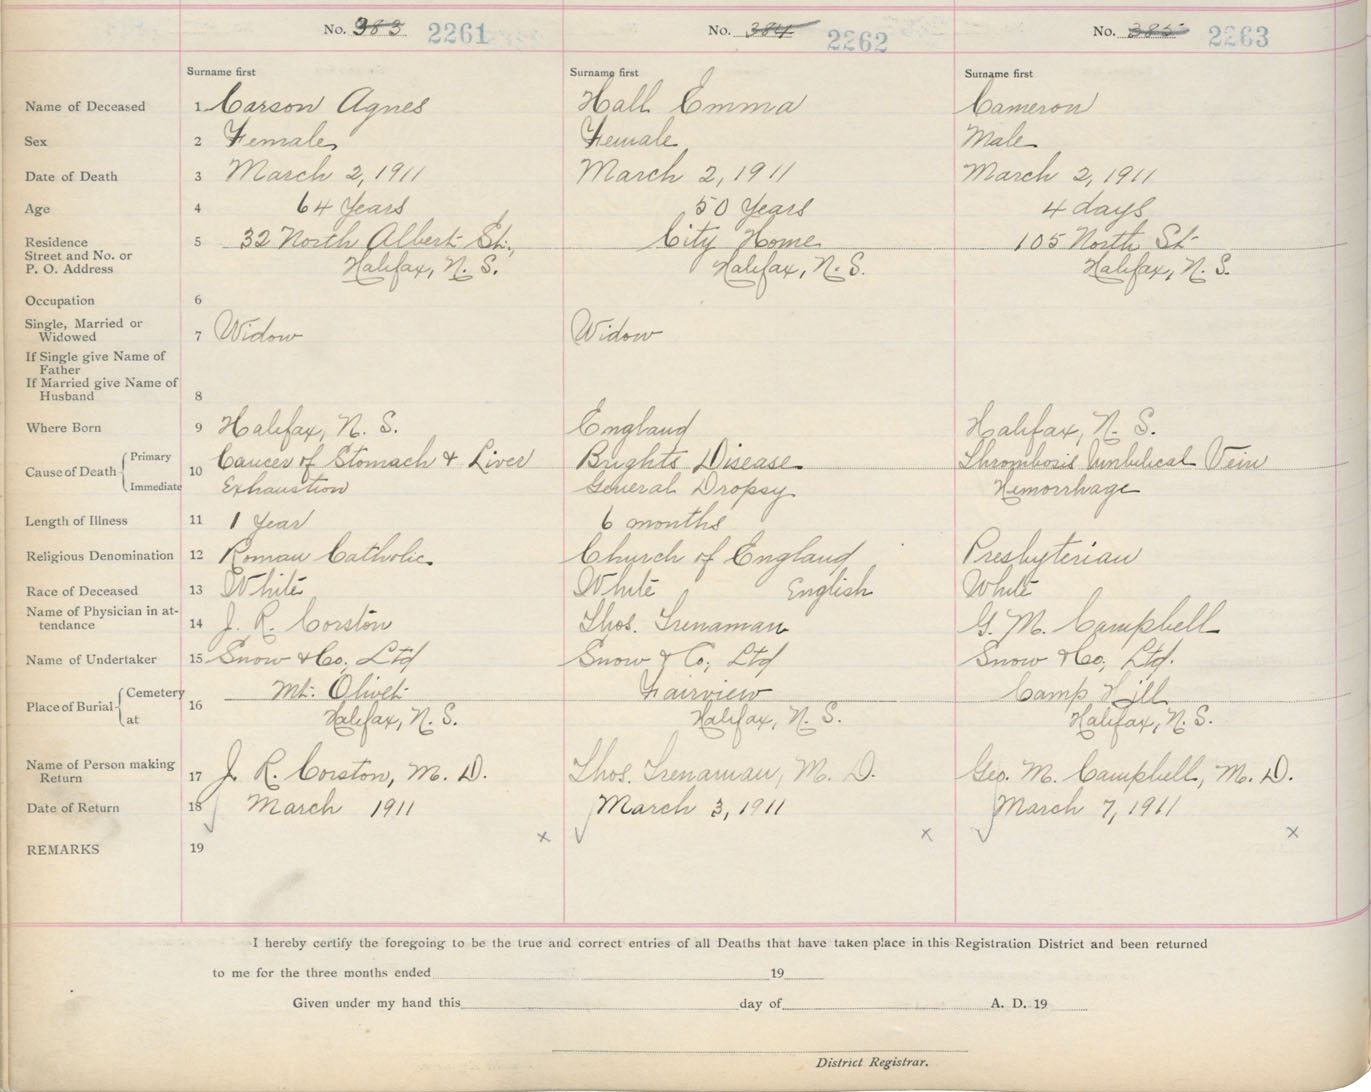 No. 383 2261 No. 384 2262 No. 385 2263
Surname first Surname first Surname first
Name of Deceased 1 Carson Agnes Hall Emma Cameron
Sex 2 Female Female Male
Date of Death 3 March 2, 1911 March 2, 1911 March 2, 1911
Age 4 64 Years 50 Years 4 days
Residence 5 32 North Albert St., City Home 105 North St
Street and No. or
P. O. Address Halifax, N. S. Halifax, N. S. Halifax, N. S.
Occupation 6
Single, Married or
Widowed 7 Widow Widow
If Single give Name of
Father
If Married give Name of
Husband 8
Where Born 9 Halifax, N. S. England Halifax, N. S.
Cause of Death Primary 10 Cancer of Stomach & Liver Brights Disease Thrombosis Umbilical Vein
Immediate Exhaustion General Dropsy Hemorrhage
Length of Illness 11 1 Year 6 months
Religious Denomination 12 Roman Catholic Church of England Presbyterian
Race of Deceased 13 White White English White
Name of Physician in at-
tendance 14 J. R. Corston Thos. Trenaman G. M. Campbell
Name of Undertaker 15 Snow & Co, Ltd Snow & Co, Ltd Snow & Co, Ltd.
Place of Burial Cemetery 16 Mt. Olivet Fairview Camp Hill
at Halifax, N. S. Halifax, N. S. Halifax, N. S.
Name of Person making
Return 17 J. R. Corston, M. D. Thos. Trenaman, M. D. Geo. M. Campbell, M. D.
Date of Return 18 March 1911 March 3, 1911 March 7, 1911
x x x
REMARKS 19
I hereby certify the foregoing to be the true and correct entries of all Deaths that have taken place in this Registration District and been returned
to me for the three months ended 19
Given under my hand this day of A. D. 19
District Registrar.